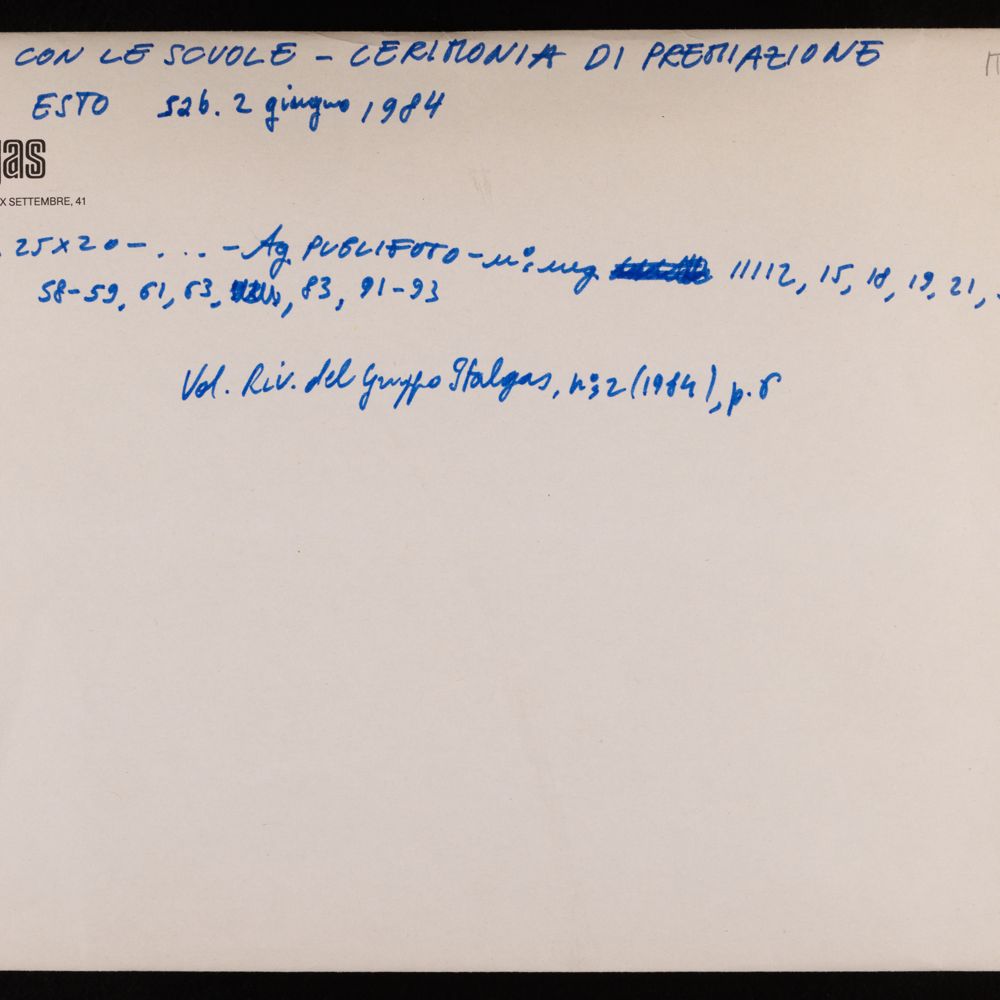 CON LE SCUOLE - CERIMONIA DI PREMIAZIONE
ESTO sab. 2 giugno 1984
gas
X SETTEMBRE, 41
25x20 - ... - Ag. PUBLIFOTO - n° neg. 11112, 15, 18, 19, 21,
58-59, 61, 63, , 83, 91-93
Vol. Riv. del Gruppo Italgas, n° 2 (1984), p. 6